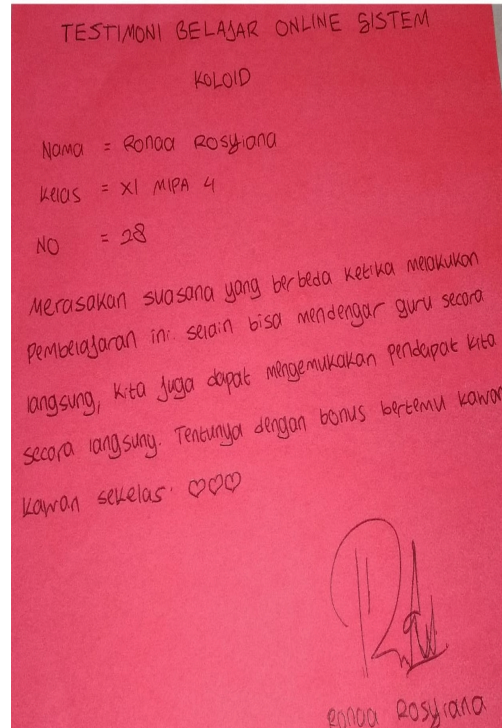 TESTIMONI BELAJAR ONLINE SISTEM
KOLOID
Nama = Ronaa Rosyiana
Kelas = XI MIPA 4
NO = 28
Merasakan suasana yang berbeda ketika melakukan
Pembelajaran ini. selain bisa mendengar guru secara
langsung, kita juga dapat mengemukakan pendapat kita
secara langsung. Tentunya dengan bonus bertemu kawan
kawan sekelas. ♡♡♡
Ronaa Rosyiana